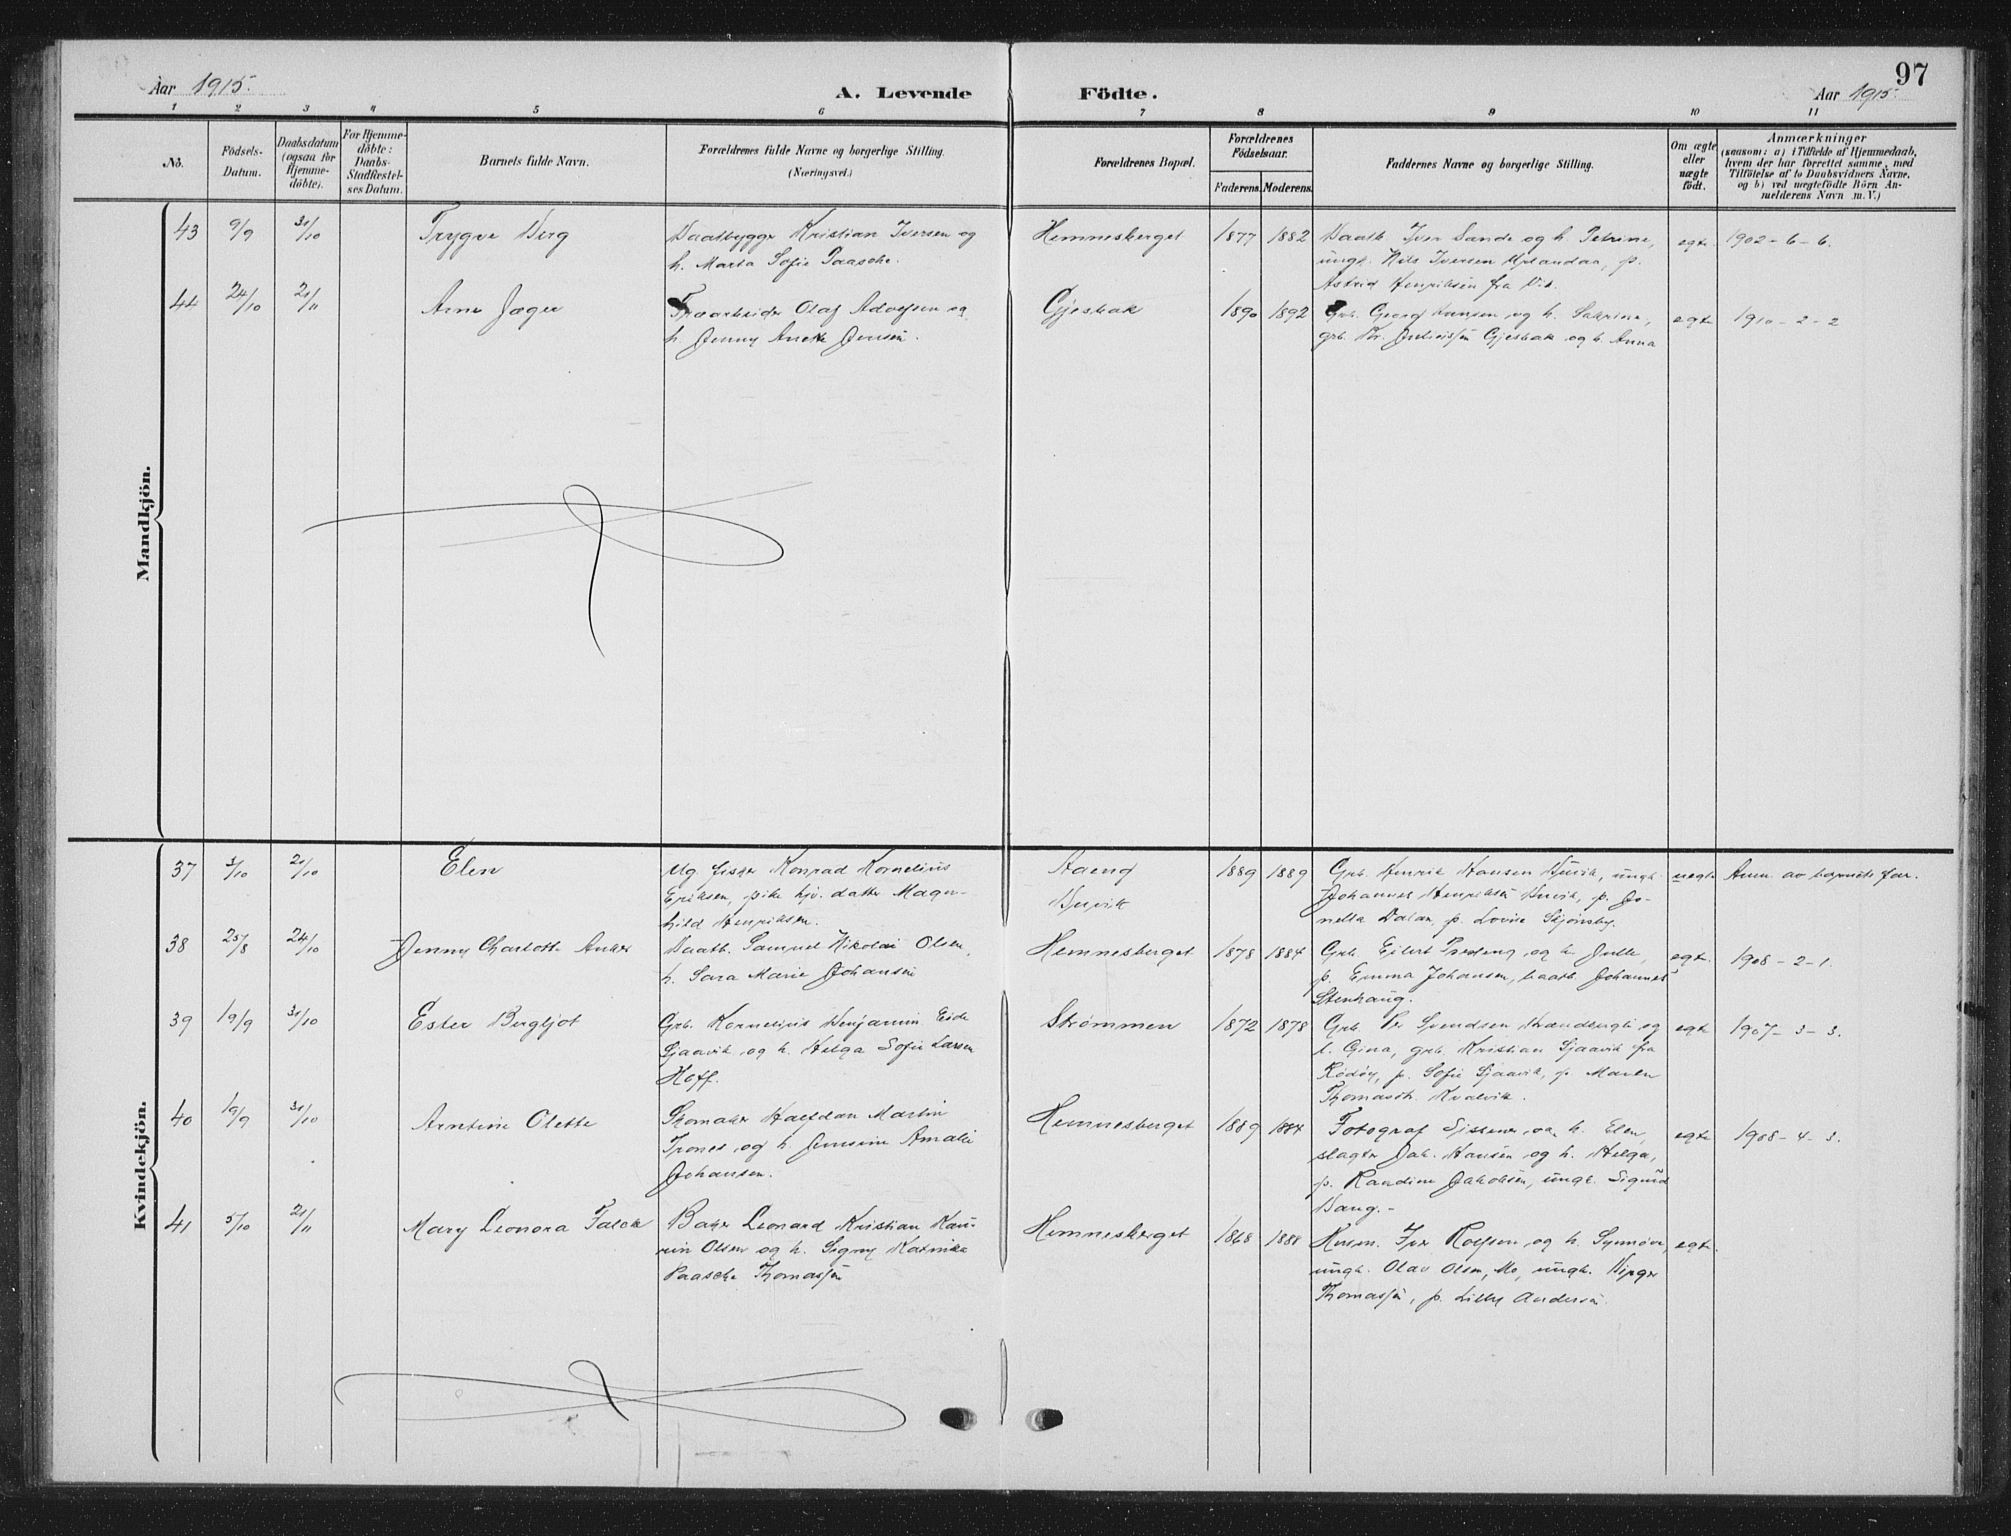 97
Aar 1915. A. Levende Födte. Aar 1915.
1 2 3 4 5 6 7 8 9 10 11
No.
Födsels-
Datum.
Daabsdatum
(ogsaa for
Hjemme-
döbte).
For Hjemme-
döbte:
Daabs-
Stadfæstel-
ses Datum.
Barnets fulde Navn.
Forældrenes fulde Navne og borgerlige Stilling.
(Næringsvei.)
Forældrenes Bopæl.
Forældrenes
Födselsaar.
Faderens. Moderens.
Faddernes Navne og borgerlige Stilling.
Om ægte
eller
uægte
födt.
Anmærkninger
(saasom: a) i Tilfælde af Hjemmedaab,
hvem der har forrettet samme, med
Tilföielse af to Daabsvidners Navne,
og b) ved uægtefödte Börn An-
melderens Navn m. V.)
Mandkjön.
43 9/9 31/10 Trygve Berg
Baatbygger Kristian Iversen og
h. Marta Sofie Paasche.
Hemnesberget 1877 1882
Baatb. Iver Sande og h. Petrine,
ungk. Nils Iversen p.
Astrid Henriksen fra Vik.
egte. 1902-6-6.
44 24/10 21/11 Arne Jæger
Olaf Adolfsen og
h. Jenny Anette Jensen.
Gjesbak 1890 1892
Grb. Georg Hansen og h. Sabrine,
grb. Gjesbak og h. Anna
egte 1910-2-2
Kvindekjön.
37 3/10 21/10 Elen
Ug. fisker Konrad Kornelius
Eriksen, pike hjv. datter Magn-
hild Henriksen.
1889 1889
Grb. Henrik Hansen ungk.
Johannes Henriksen p. Jo-
netta Dalan, p. Lovise
uegte Anm. av barnets far.
38 25/8 24/10 Jenny Charlotte Anker
Baatb. Samuel Nikolai Olsen,
h. Sara Marie Johansen
Hemnesberget 1878 1884
Grb. Eilert og h.
p. Emma Johansen, baatb. Johannes
Stenhaug.
egte. 1908-2-1.
39 19/9 31/10 Ester Bergljot
Grb. Kornelius Benjamin Eide
Sjaavik og h. Helga Sofie Larsen
Hoff.
Strømmen 1872 1878
Grb. Per Svendsen og
h. Gina, grb. Kristian Sjaavik fra
Rödöy, p. Sofie Sjaavik, p. Maren
Thomassen Kvalvik.
egte 1907-3-3.
40 19/9 31/10 Arntine Olette
Skomaker Halfdan Martin
Trones og h. Jensine Amalie
Johansen.
Hemnesberget 1889 1884
Fotograf Sissener og h. Elen,
slagter Jak. Hansen og h. Helga,
p. Randine Jakobsen, ungk. Sigurd
Bang.-
egte 1908-4-3.
41 5/10 21/11 Mary Leonora Falck
Baker Leonard Kristian Kau-
rin Olsen og h. Signy Katinka
Paasche Thomassen
Hemnesberget 1868 1888
Husm. Iver Rolfsen og h. Synnöve,
ungk. Olav Olsen, Mo, ungk. Birger
Thomassen, p. Lilly Andersen.
egte.